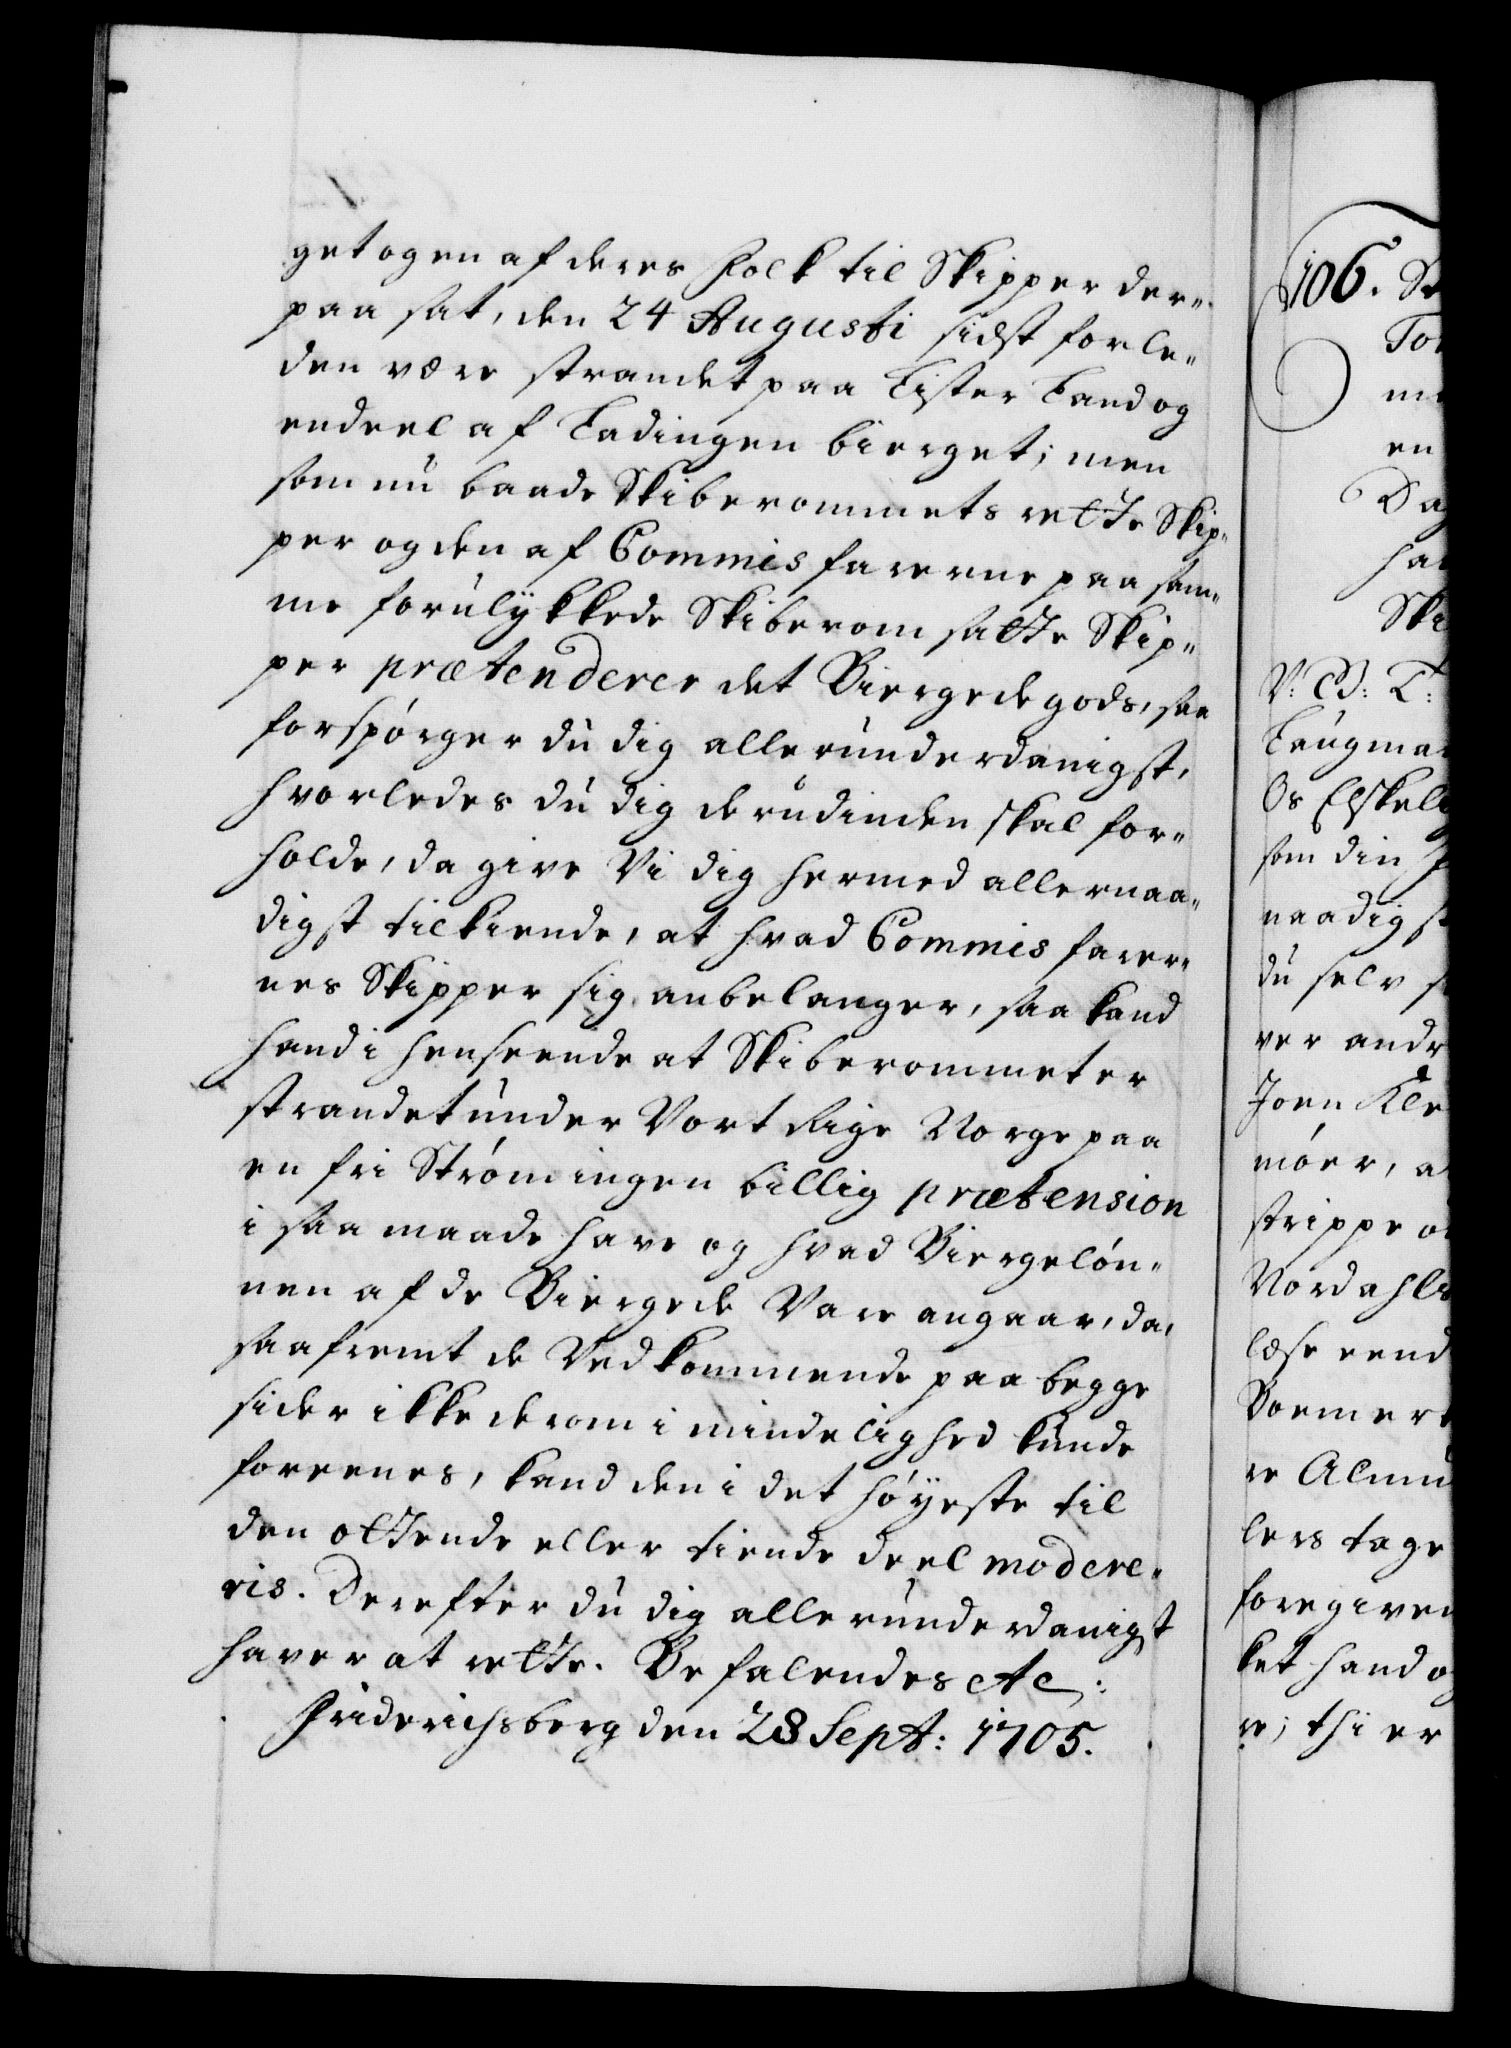 get og en af deres Folk til Skipper der„
paa sat, den 24 Augusti sidst forle„
den være strandet paa Lister Land og
endeel af Ladingen bierget; men
som nu baade Skiberommets rette Skip„
per og den af Commis farerne paa sam„
me forulÿkkede Skiberom satte Skip„
per prætenderer det Biergede gods, saa
forspörger du dig allerunderdanigst,
hvorledes du dig derudinden skal for„
holde, da give Vi dig hermed allernaa„
digst tilkiende, at hvad Commis farer„
nes Skipper sig anbelanger, saa kand
hand i henseende at Skiberommet er
strandet under Vort Rige Norge paa
en fri Ström ingen billig prætension
i saa maade have og hvad Biergelön„
nen af de Biergede Vare angaar, da,
saafremt de Vedkommende paa begge
sider ikke derom i mindelighed kunde
foreenes, kand den i det höÿeste til
den ottende eller tiende deel modere„
ris. Derefter du dig allerunderdanigst
haver at rette. Befalendes etc:
Friderichsberg den 28 Sept: 1705.
106.
Skip
V: G: T:
Laugman
Os Elskel
som din
naadigst
du selv
ver andr
Joen Kle
möer, a
strippe
Nordahls
læse eend
re Almu
lers tage
foregiven
ket hand og
re; thi er